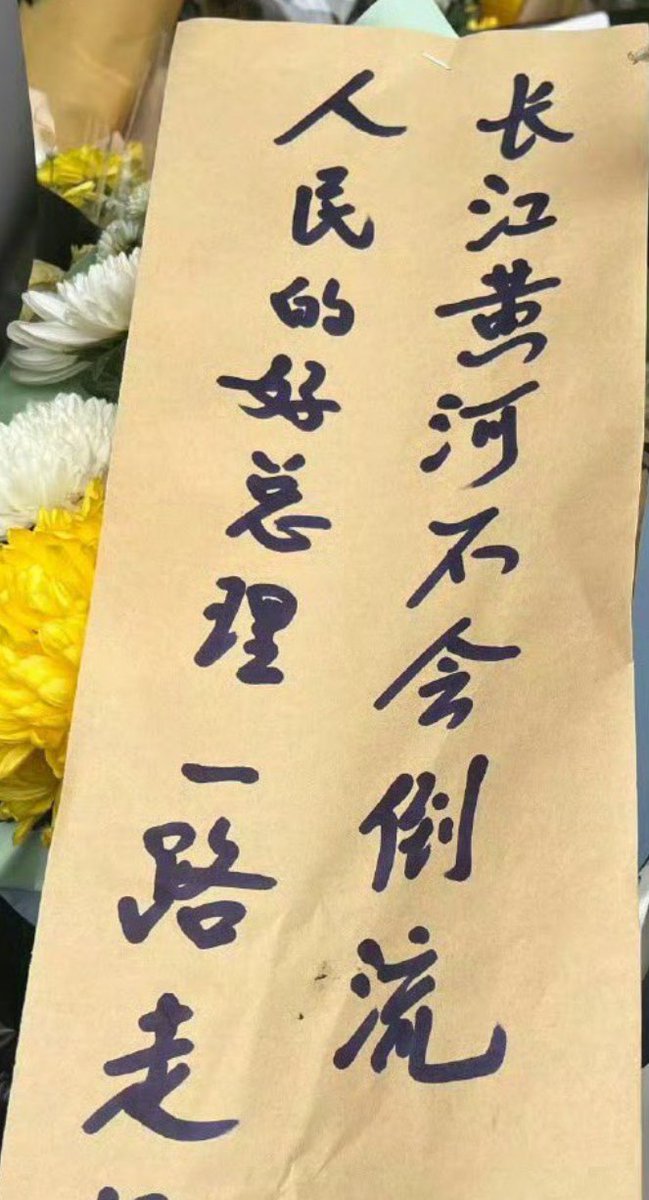 长江黄河不会倒流
人民的好总理一路走